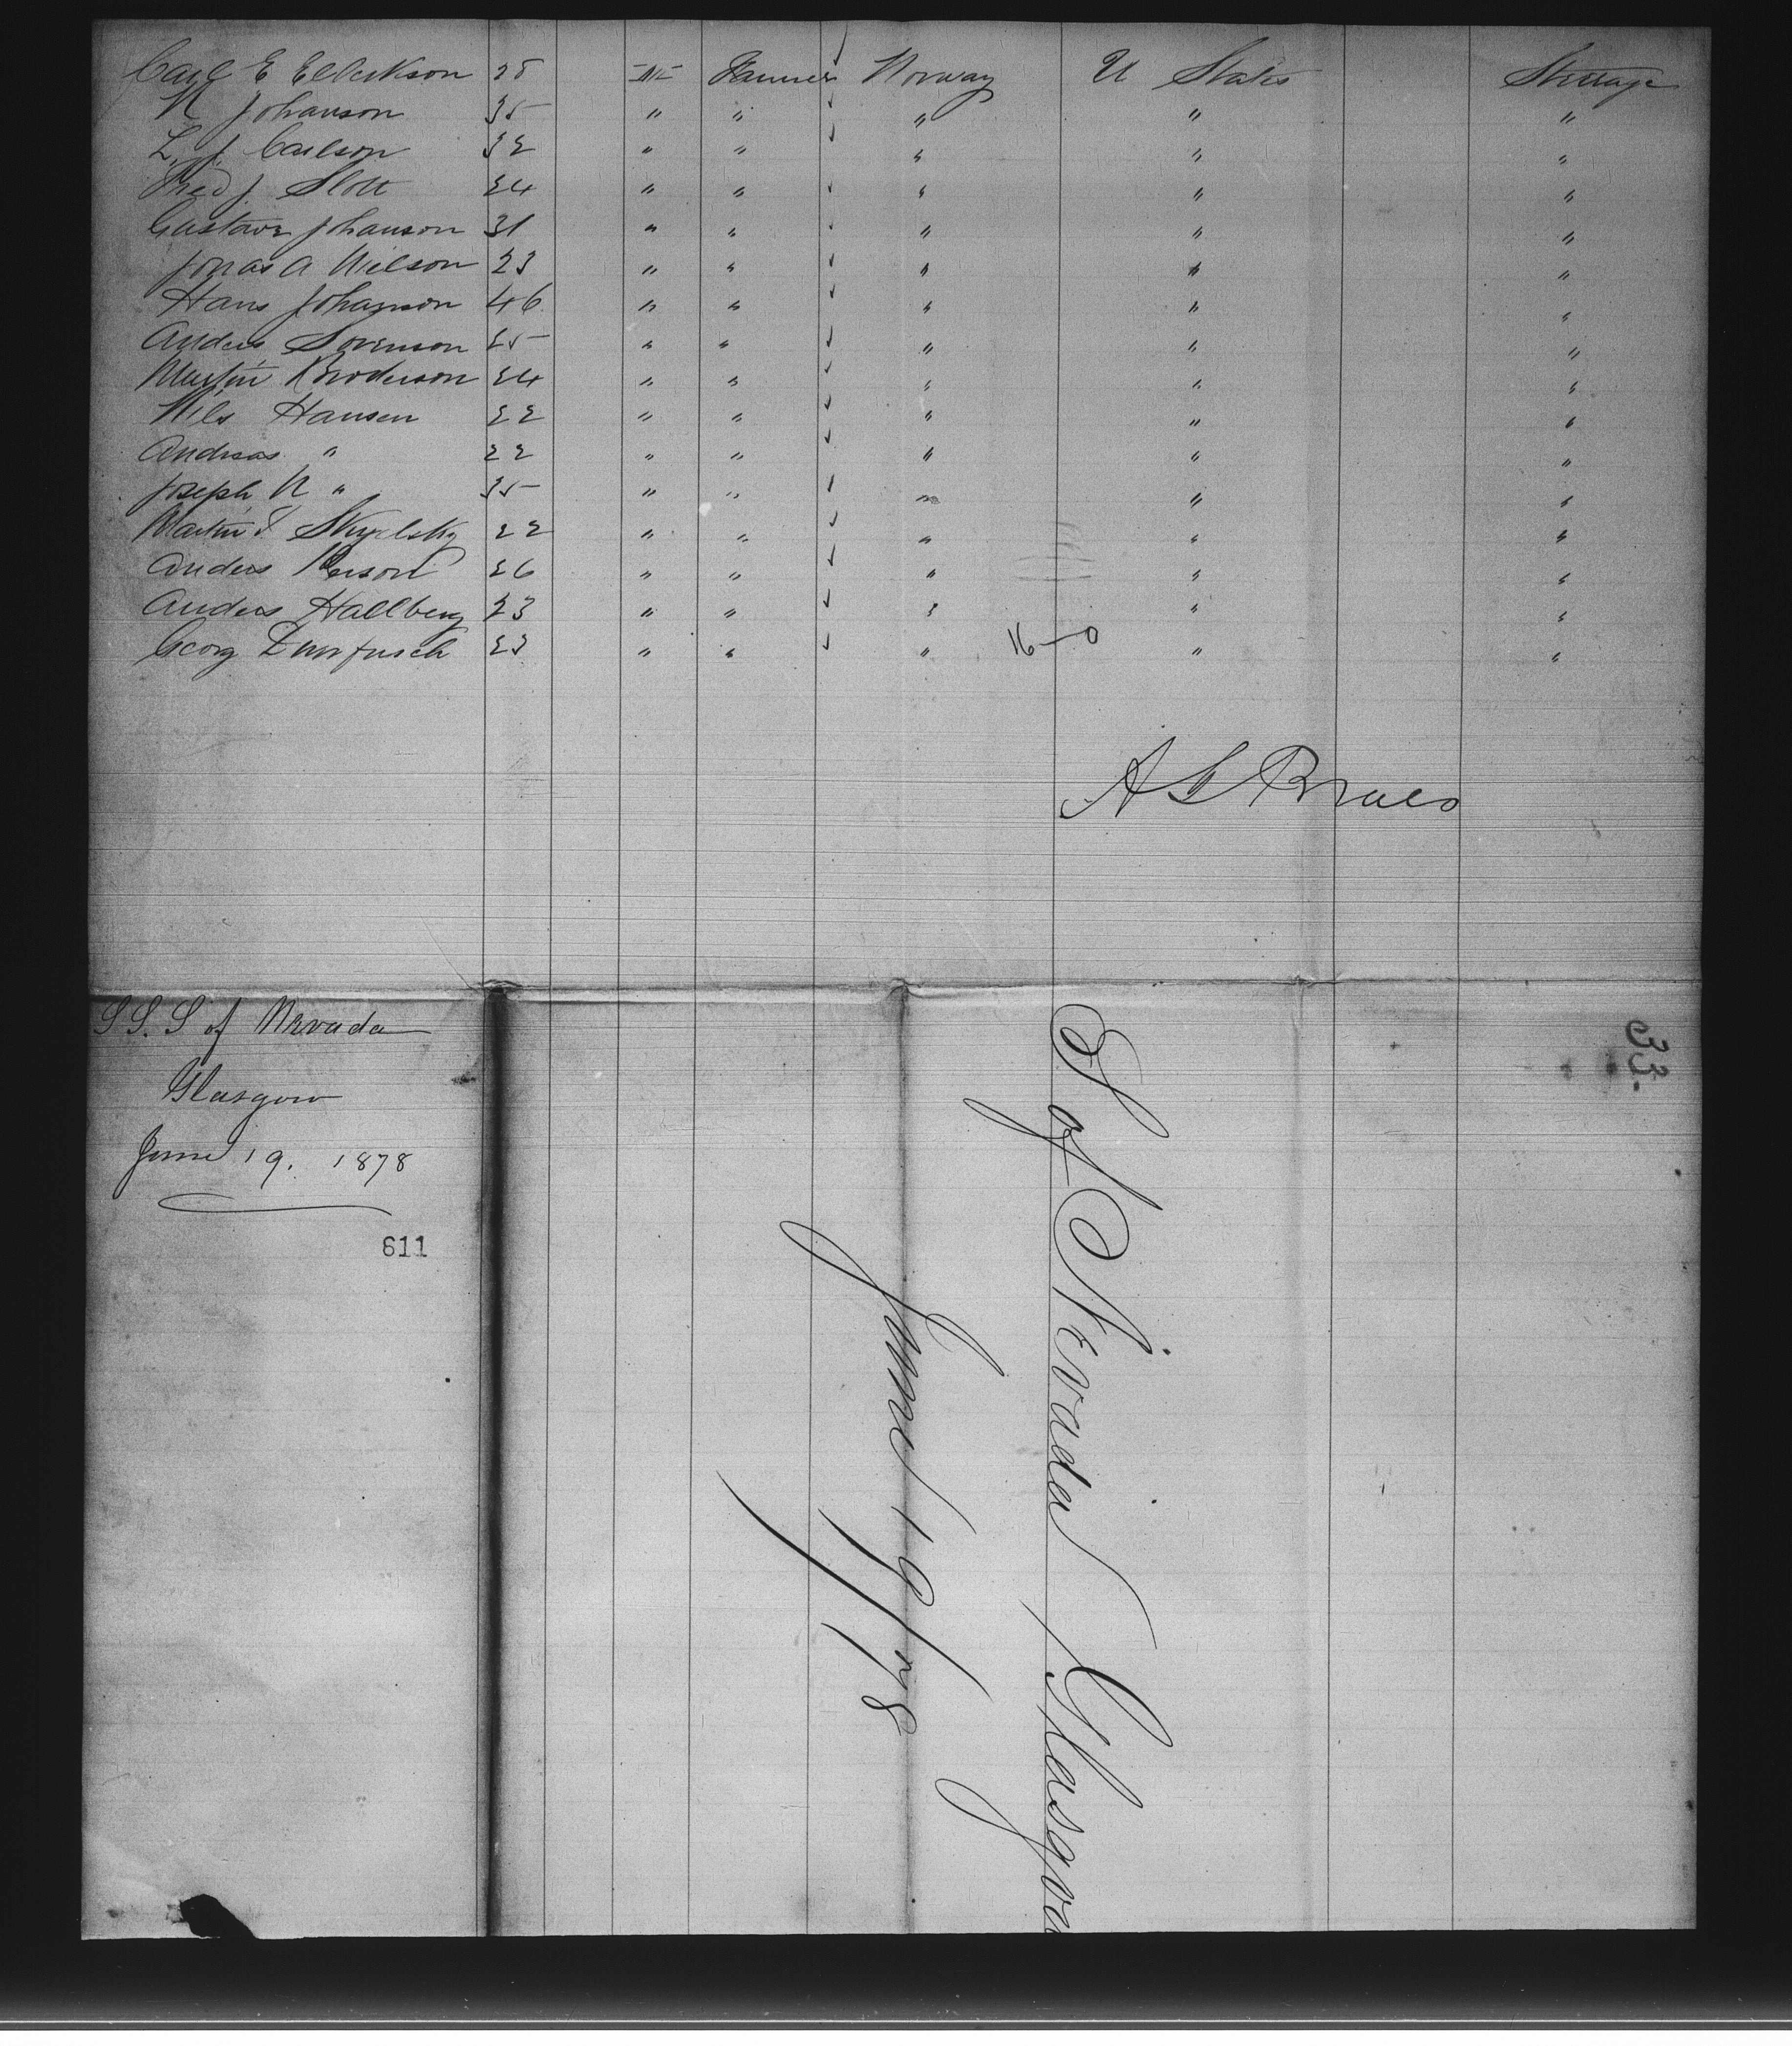 Carl E Ellerkson 28 M Farmer Norway U States Steerage
N Johanson 35 " " " " "
L. J. Carlson 32 " " " " "
Fred J. Slott 24 " " " " "
Gustave Johanson 31 " " " " "
Jonas A Nielson 23 " " " " "
Hans Johanson 46 " " " " "
Anders Sorenson 25 " " " " "
Martin Broderson 24 " " " " "
Nils Hansen 22 " " " " "
Andreas " 22 " " " " "
Joseph N " 35 " " " " "
Martin 22 " " " " "
Anders Person 26 " " " " "
Anders Hallberg 23 " " " " "
Georg 23 " " " 16-0 " "
A L
S S. S of Nevada
Glasgow
June 19. 1878
611
33.
S of Nevada Glasgow
June 19/78